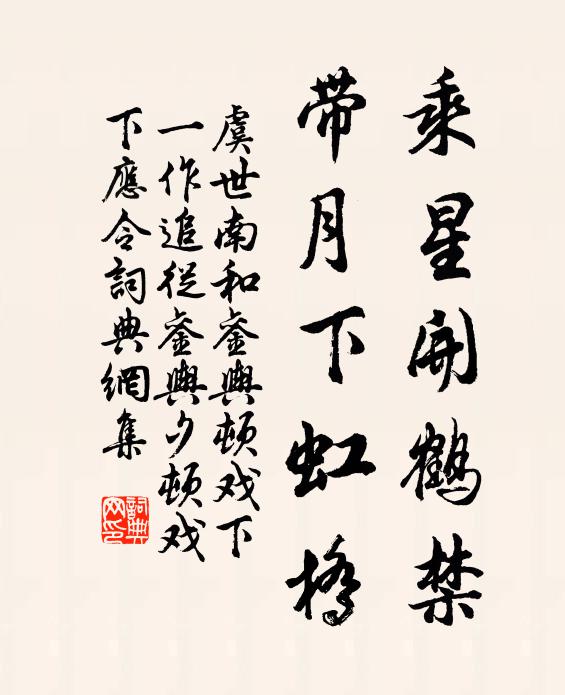 乘星開鶴禁
帶月下虹橋
虞世南和銮輿頓戏下
一作追從銮輿夕頓戏
下應令詞典網集
詞典网印